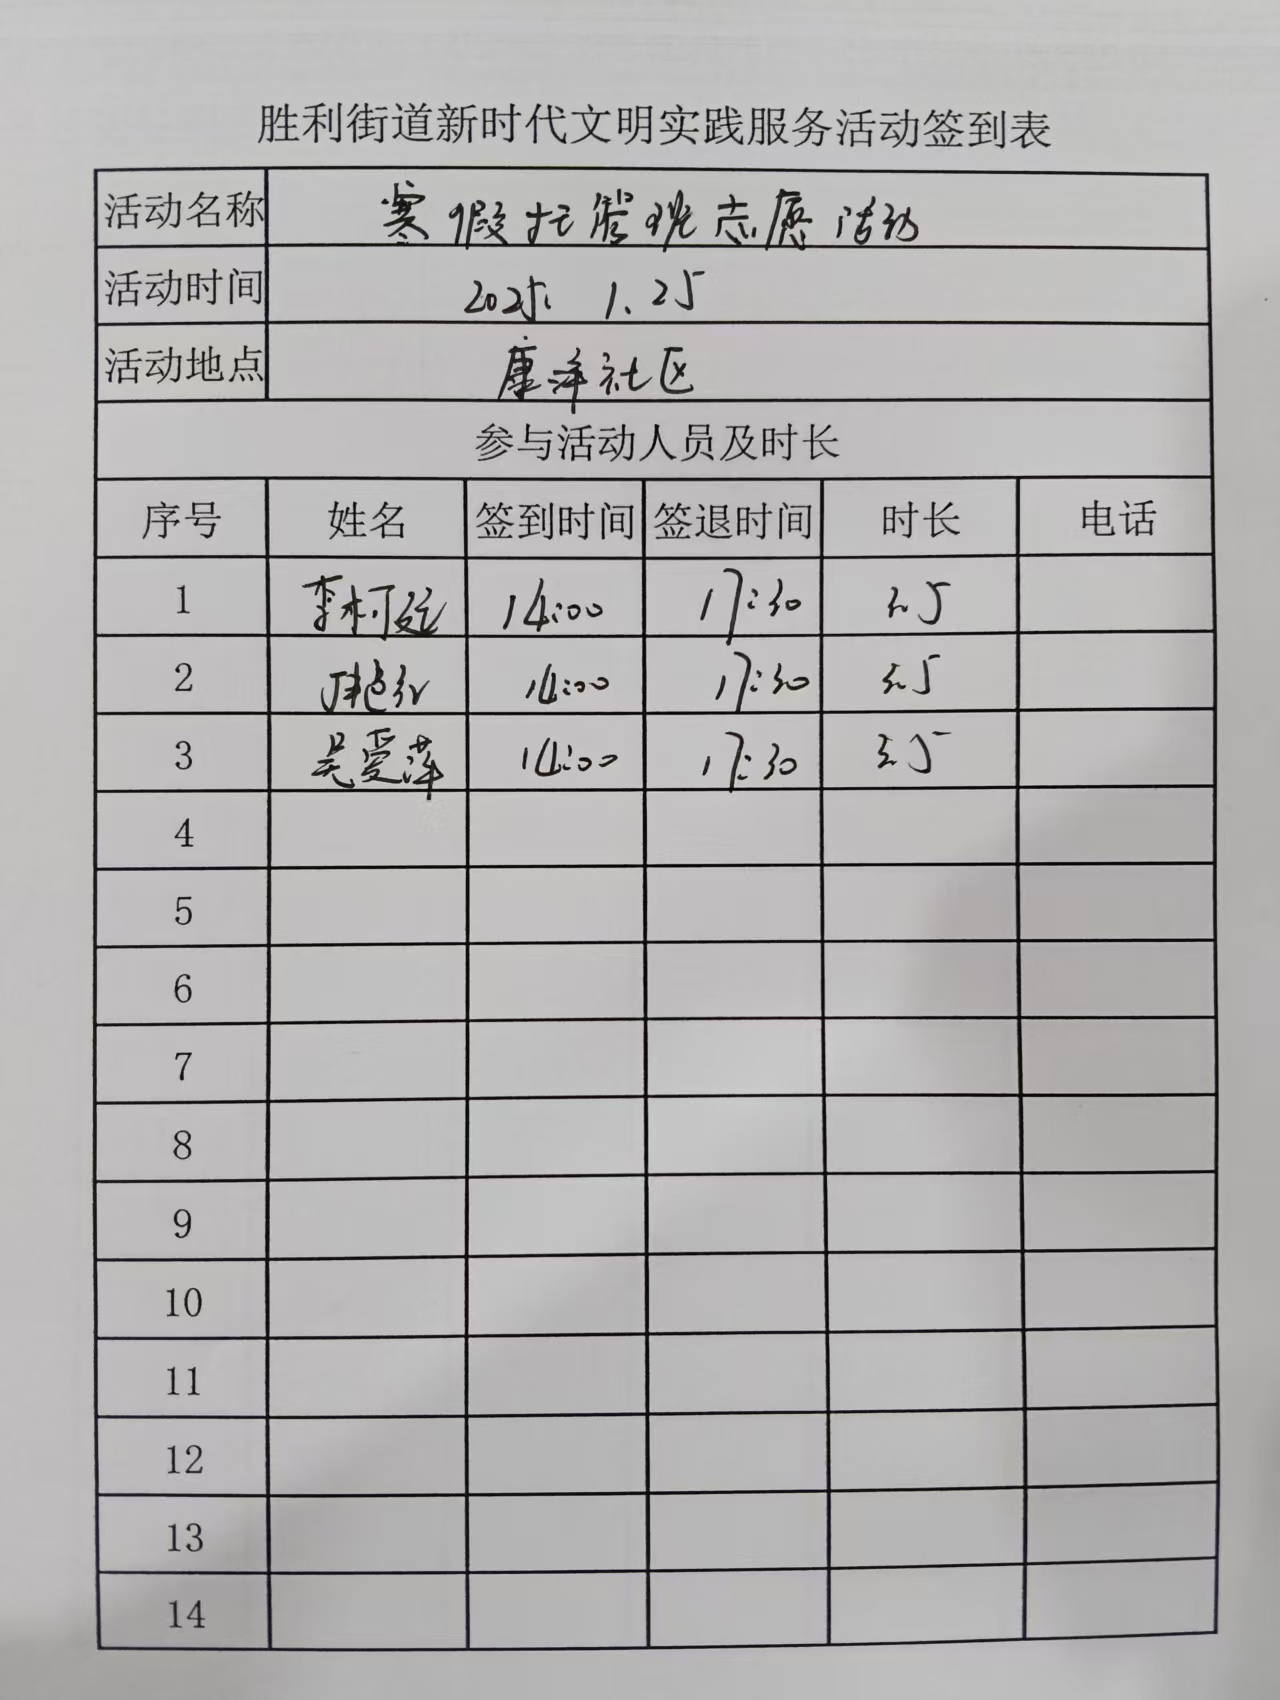 胜利街道新时代文明实践服务活动签到表
活动名称 寒假托管班志愿活动
活动时间 2025. 1. 25
活动地点 康泽社区
参与活动人员及时长
序号 姓名 签到时间 签退时间 时长 电话
1 李柯 14:00 17:30 3.5
2 14:00 17:30 3.5
3 吴爱萍 14:00 17:30 3.5
4
5
6
7
8
9
10
11
12
13
14